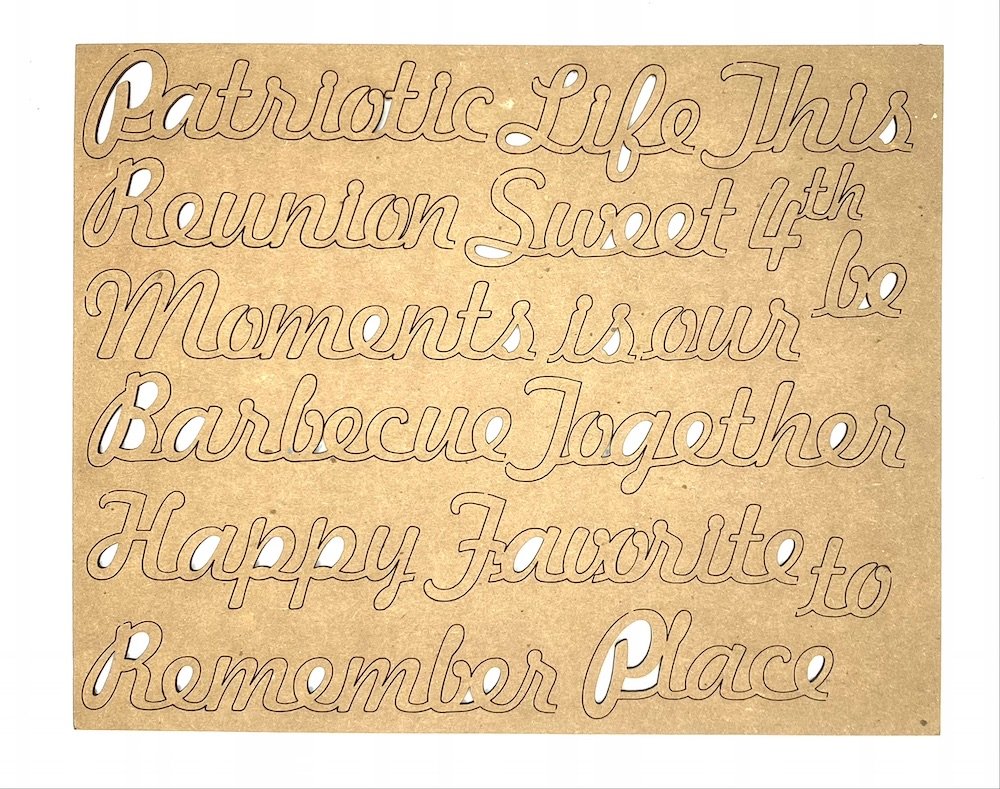 Patriotic Life This
Reunion Sweet 4th
Moments is our be
Barbecue Together
Happy Favorite to
Remember Place